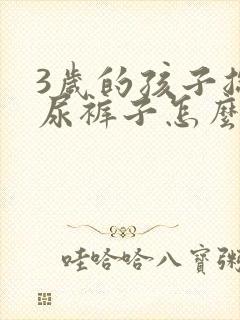 3歲的孩子
尿裤子怎麼
哇哈哈八寶粥